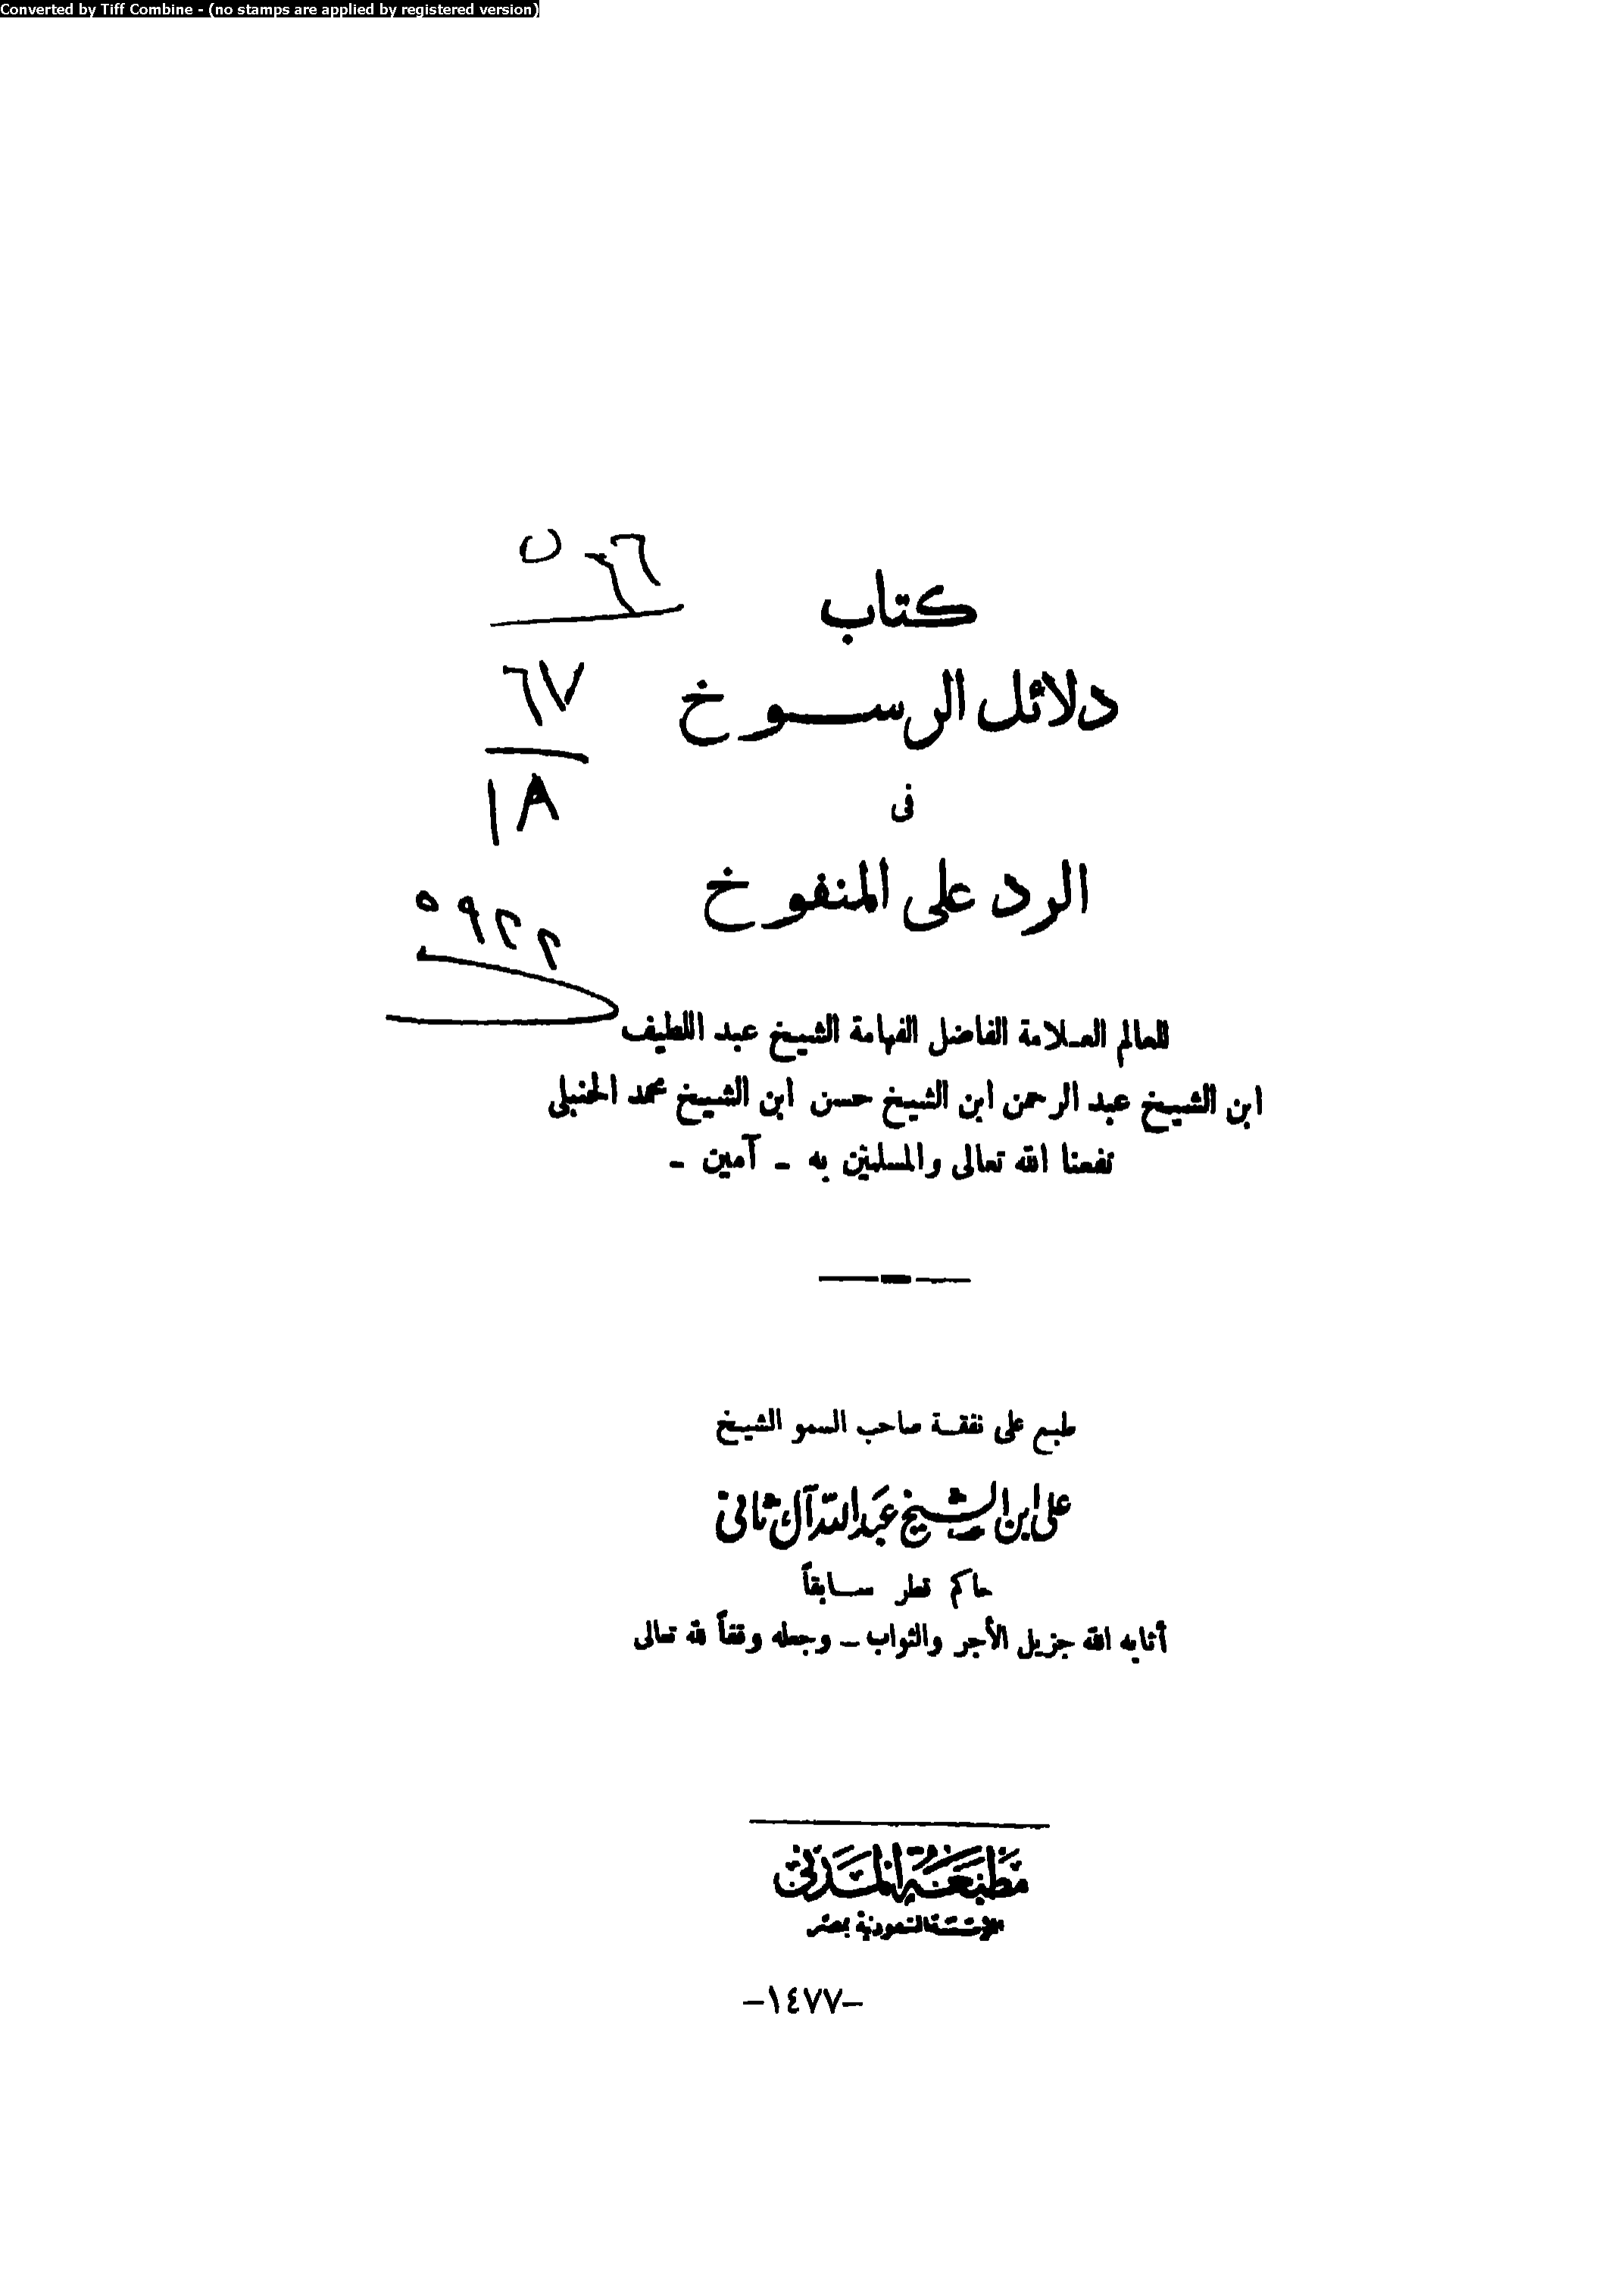 Converted by Tiff Combine - (no stamps are applied by registered version)
كتاب
دلائل الرسوخ
فى
الرد على المنفوخ
٦٧
١٨
٥٩٢٢
للعالم العلامة الفاضل الفهامة الشيخ عبد اللطيف
ابن الشيخ عبد الرحمن ابن الشيخ حسن ابن الشيخ محمد الحنبلى
نفعنا الله تعالى والمسلمين به - آمين -
طبع على نفقة صاحب السمو الشيخ
على ابن الشيخ عبد الله آل ثانى
حاكم قطر سابقاً
أثابه الله جزيل الأجر والثواب - وجعله وقفاً لله تعالى
مطبعة المدنى
المؤسسة السعودية بمصر
-١٤٧٧-